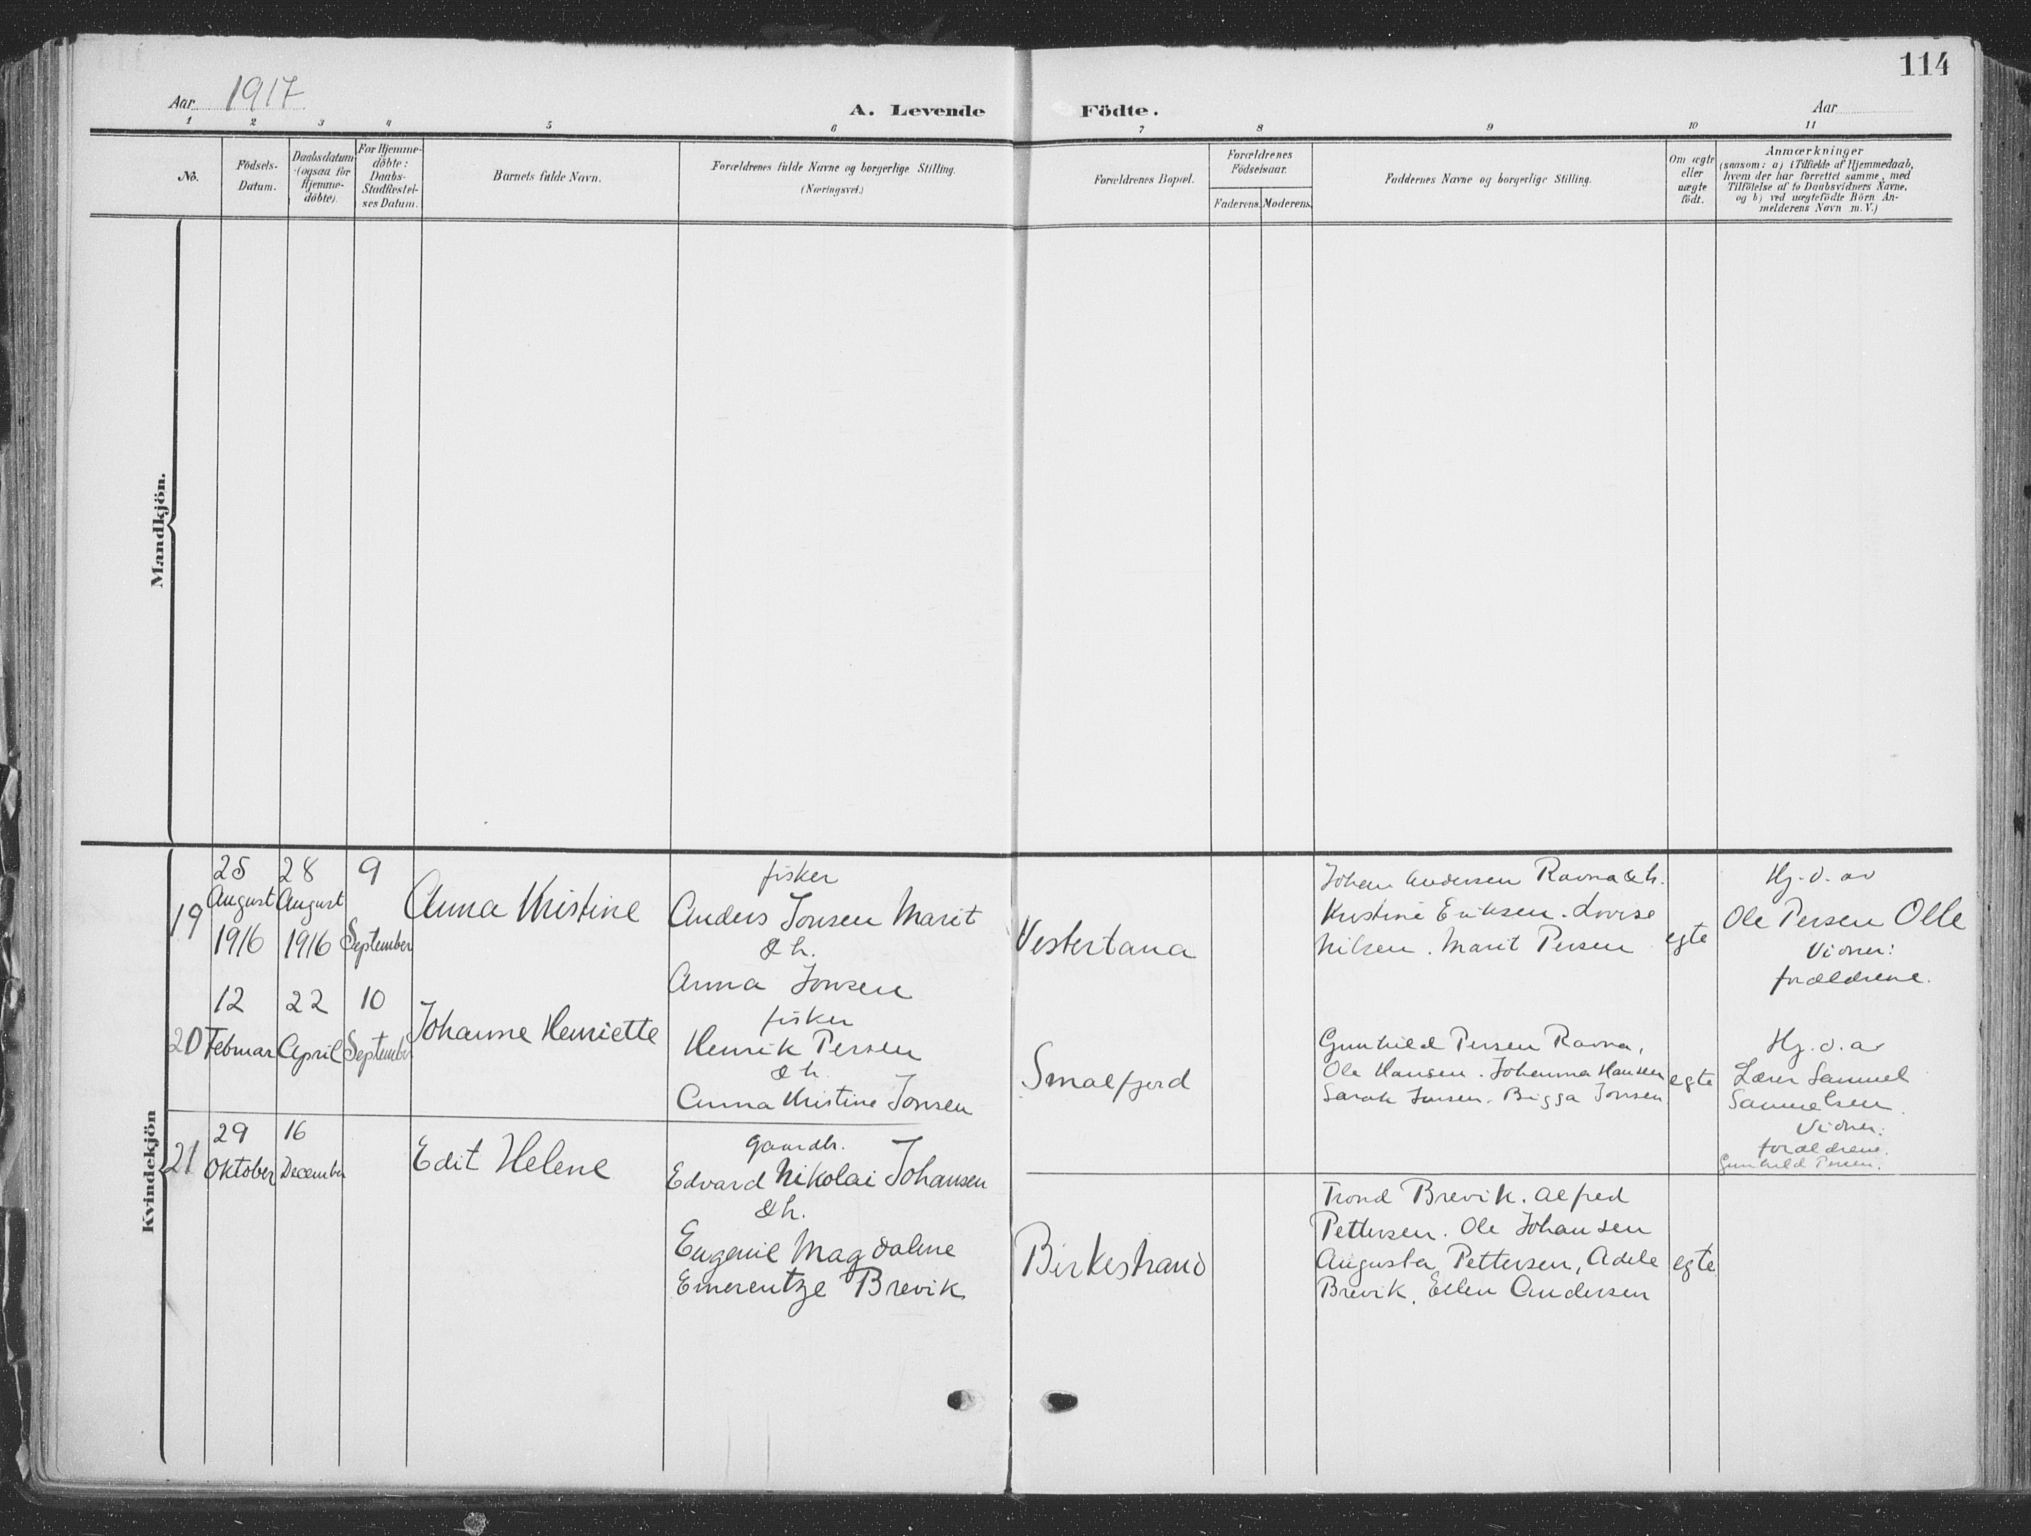 114
Aar 1917
A. Levende Födte.
Aar
1 2 3 4 5 6 7 8 9 10 11
No.
Födsels-
Datum.
Daabsdatum
(ogsaa for
Hjemme-
döbte).
For Hjemme-
döbte:
Daabs-
Stadfæstel-
ses Datum.
Barnets fulde Navn.
Forældrenes fulde Navne og borgerlige Stilling.
(Næringsvei.)
Forældrenes Bopæl.
Forældrenes
Födselsaar.
Faderens. Moderens.
Faddernes Navne og borgerlige Stilling.
Om ægte
eller
uægte
födt.
Anmærkninger
(saasom: a) i Tilfælde af Hjemmedaab,
hvem der har forrettet samme, med
Tilföielse af to Daabsvidners Navne,
og b) ved uægtefödte Börn An-
melderens Navn m. V.)
Mandkjön.
Kvindekjön
19
25
August
1916
28
August
1916
9
September
Anna Kristine
fisker
Anders Jonsen Marit
& h.
Anna Jonsen
Vestertana
Johan Andersen Ravna & h.
Kristine Eriksen. Lovise
Nilsen. Marit Persen
egte
Hj. d. av
Ole Persen Olle
Vidner:
forældrene.
20
12
Februar
22
April
10
September
Johanne Henriette
fisker
Henrik Persen
& h.
Anna Kristine Jonsen
Smalfjord
Gunhild Persen Ravna,
Ole Hansen. Johanna Hansen
Sarah Jonsen. Bigga Jonsen
egte
Hj. d. av
Lærer Samuel
Samuelsen.
Vidner:
forældrene.
Gunhild Persen.
21
29
Oktober
16
December
Edit Helene
gaardbr.
Edvard Nikolai Johansen
& h.
Eugenie Magdalene
Emerentze Brevik
Birkestrand
Trond Brevik. Alfred
Pettersen. Ole Johansen
Augusta Pettersen, Adele
Brevik, Ellen Andersen
egte